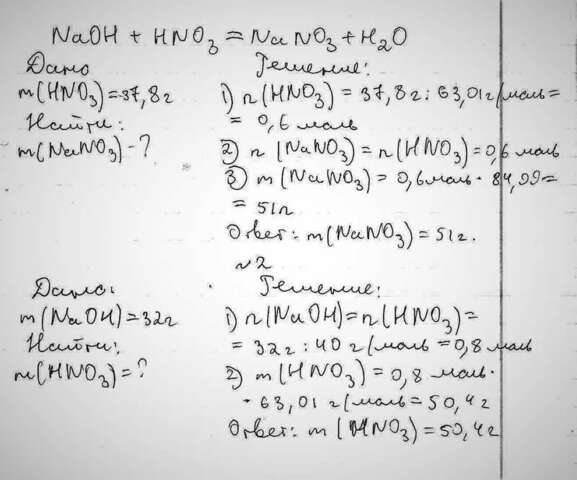 NaOH + HNO₃ = NaNO₃ + H₂O
Дано
m(HNO₃)=37,8г
Найти:
m(NaNO₃) - ?
Решение:
1) n(HNO₃) = 37,8г : 63,01г/моль =
= 0,6 моль
2) n (NaNO₃) = n(HNO₃) = 0,6 моль
3) m (NaNO₃) = 0,6моль · 84,99 =
= 51г
Ответ: m(NaNO₃) = 51г.
№2
Дано:
m(NaOH)=32г
Найти:
m(HNO₃)=?
Решение:
1) n(NaOH)=n(HNO₃)=
= 32г : 40 г/моль = 0,8 моль
2) m(HNO₃) = 0,8 моль·
· 63,01 г/моль = 50,4г
Ответ: m(HNO₃) = 50,4г